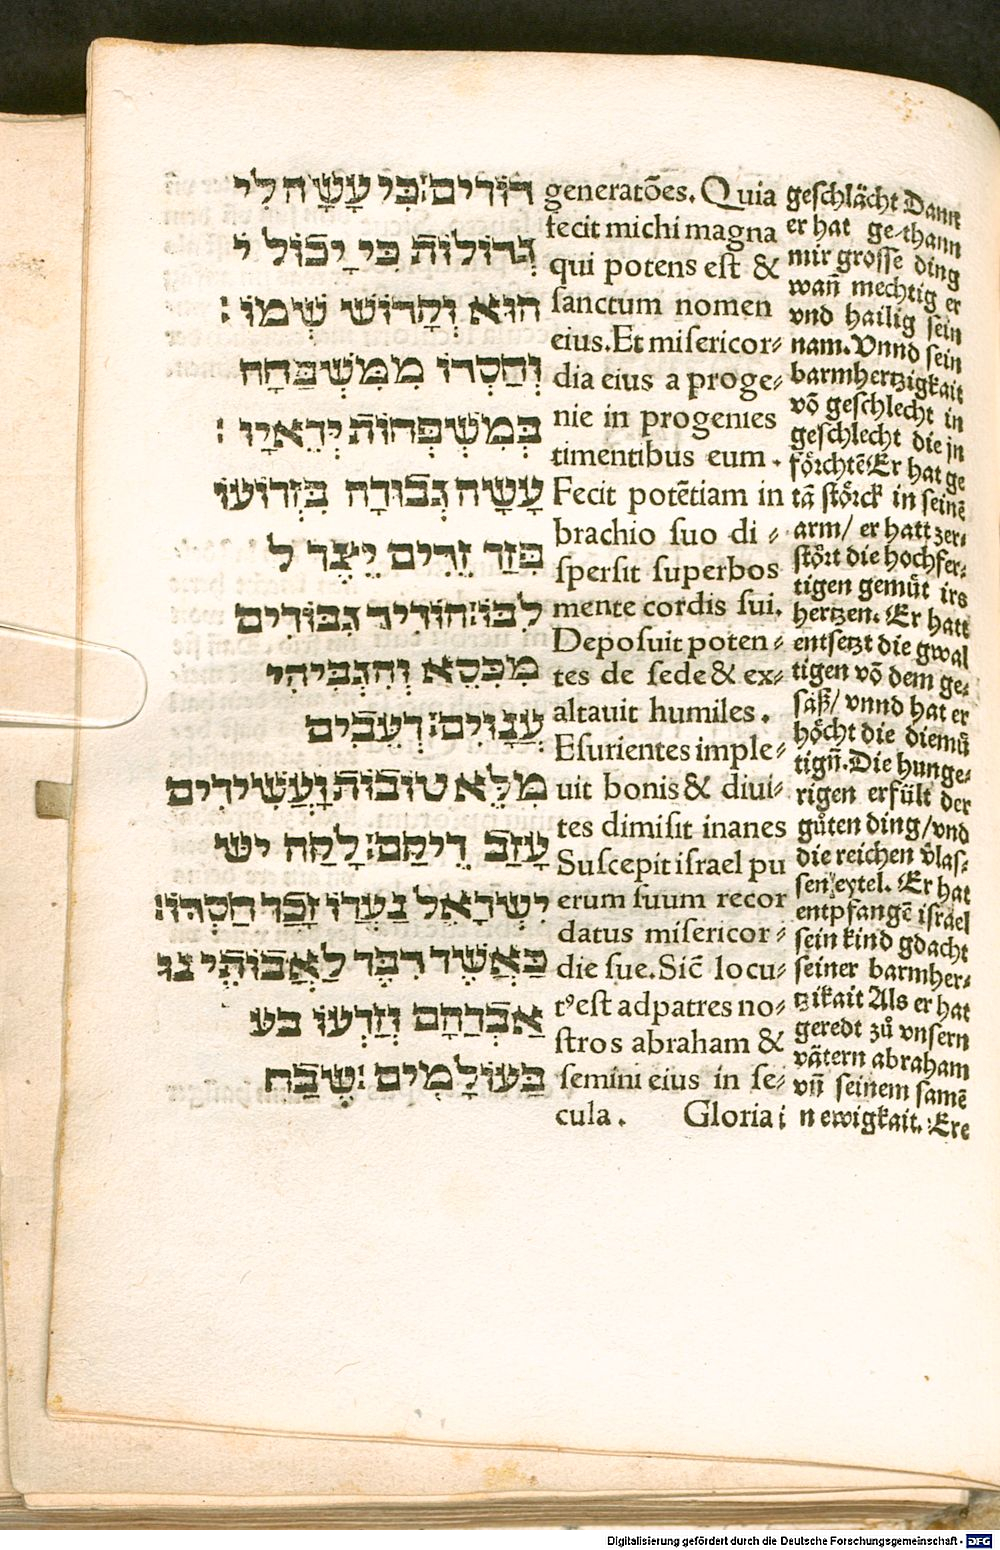 דוֹרִים׃ כִּי עָשָׂה לִי
גְּדוֹלוֹת כִּי יָכוֹל י
הוּא וְקָדוֹשׁ שְׁמוֹ׃
וְחַסְדוֹ מִמִּשְׁפַּחָה
בְּמִשְׁפְּחוֹת יְרֵאָיו׃
עָשָׂה גְבוּרָה בִּזְרוֹעוֹ
פִּזַר זֵרִים יֵצֶר ל
לִבּוֹ׃ הוֹרִיד גִּבּוֹרִים
מִכִּסֵא וְהִגְבִּיהִי
עֲנָוִים׃ רְעֵבִים
מִלֵּא טוֹבוֹת וַעֲשִׁירִים
עָזַב רֵיקַם׃ לָקַח יש
יִשְׂרָאֵל נַעְרוֹ זָכַר חַסְדּוֹ׃
כַּאֲשֶׁר דִּבֶּר לַאֲבוֹתֵי נו
אַבְרָהָם וְזַרְעוֹ בע
בַּעוֹלָמִים׃ שֶׁבַח
generatões. Quia
fecit michi magna
qui potens est &
sanctum nomen
eius. Et misericor-
dia eius a proge-
nie in progenies
timentibus eum.
Fecit potẽtiam in
brachio suo di-
spersit superbos
mente cordis sui.
Deposuit poten-
tes de sede & ex-
altauit humiles.
Esurientes imple-
uit bonis & diui-
tes dimisit inanes
Suscepit israel pu
erum suum recor
datus misericor-
die sue. Sic̃ locu-
t⁹ est ad patres no-
stros abraham &
semini eius in se-
cula. Gloria i
geschlächt Dann
er hat ge-thann
mir grosse ding
wañ mechtig er
vnd hailig sein
nam. Vnnd sein
barmhertzigkait
võ geschlecht in
geschlecht die jn
förchtẽ Er hat ge
tã störck in seinẽ
arm/ er hatt zer-
stört die hochfer-
tigen gemüt irs
hertzen. Er hatt
entsetzt die gwal
tigen võ dem ge-
säß/ vnnd hat er
höcht die diemü
tigñ. Die hunge-
rigen erfült der
gůten ding/vnd
die reichen v̂las-
sen eytel. Er hat
entpfangẽ israel
sein kind gdacht
seiner barmher-
tzikait Als er hat
geredt zů vnsern
vätern abraham
vñ seinem samẽ
n ewigkait. Ere
Digitalisierung gefördert durch die Deutsche Forschungsgemeinschaft - DFG